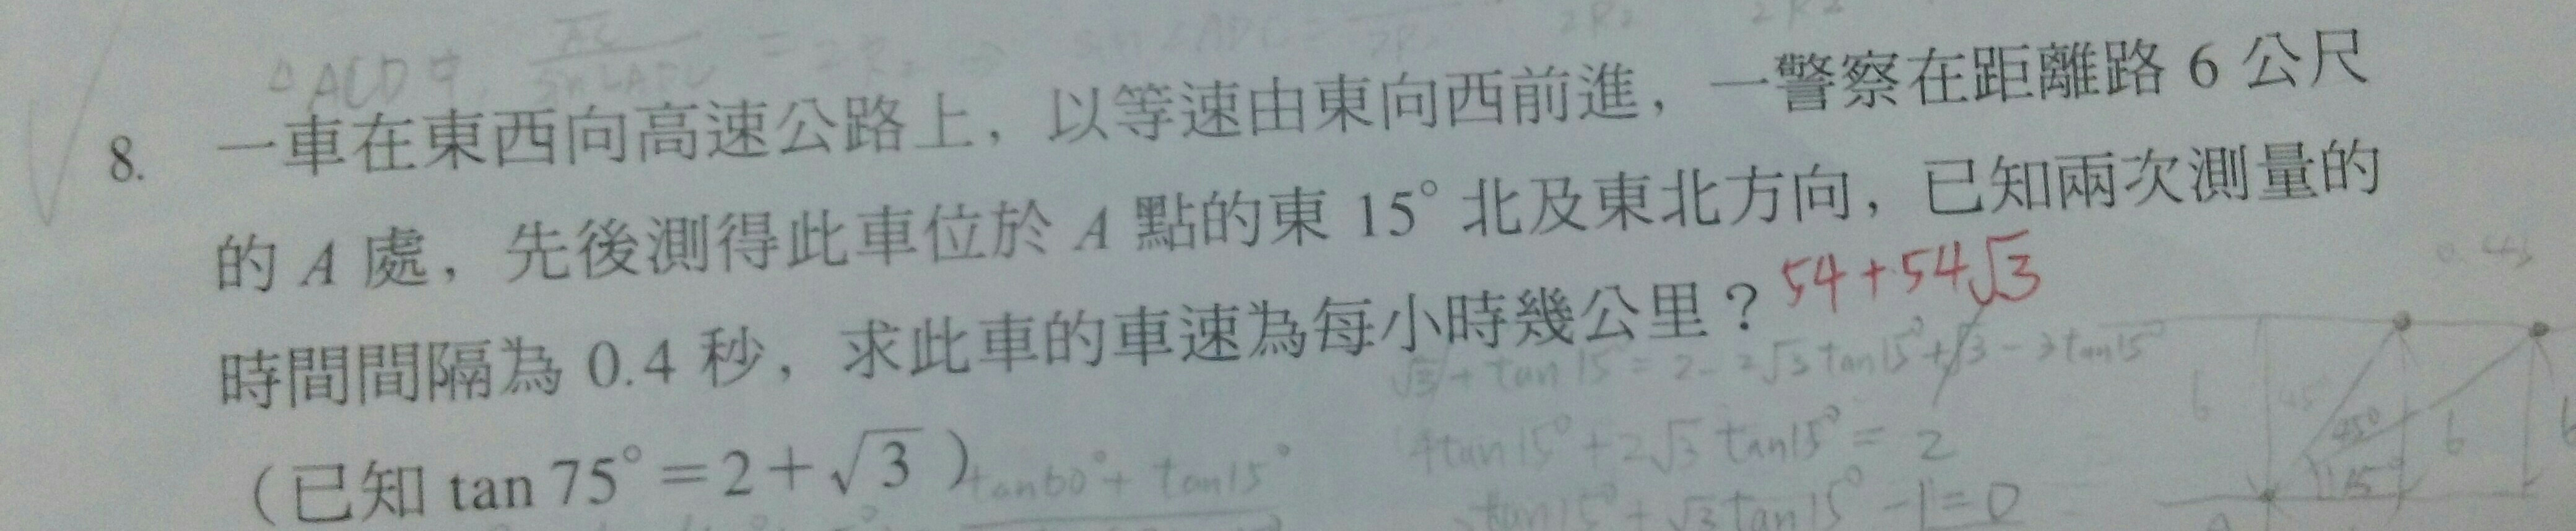 △ACD中,
8. 一車在東西向高速公路上,以等速由東向西前進,一警察在距離路 6 公尺
的 A 處,先後測得此車位於 A 點的東 15° 北及東北方向,已知兩次測量的
時間間隔為 0.4 秒,求此車的車速為每小時幾公里? 54+54√3
√3 + tan15° = 2 - 2√3 tan15° + √3 - 3tan15°
(已知 tan 75° = 2 + √3 )
4tan15° + 2√3 tan15° = 2
tan60° + tan15°
tan15° + √3 tan15° - 1 = 0
6
45°
15°
6